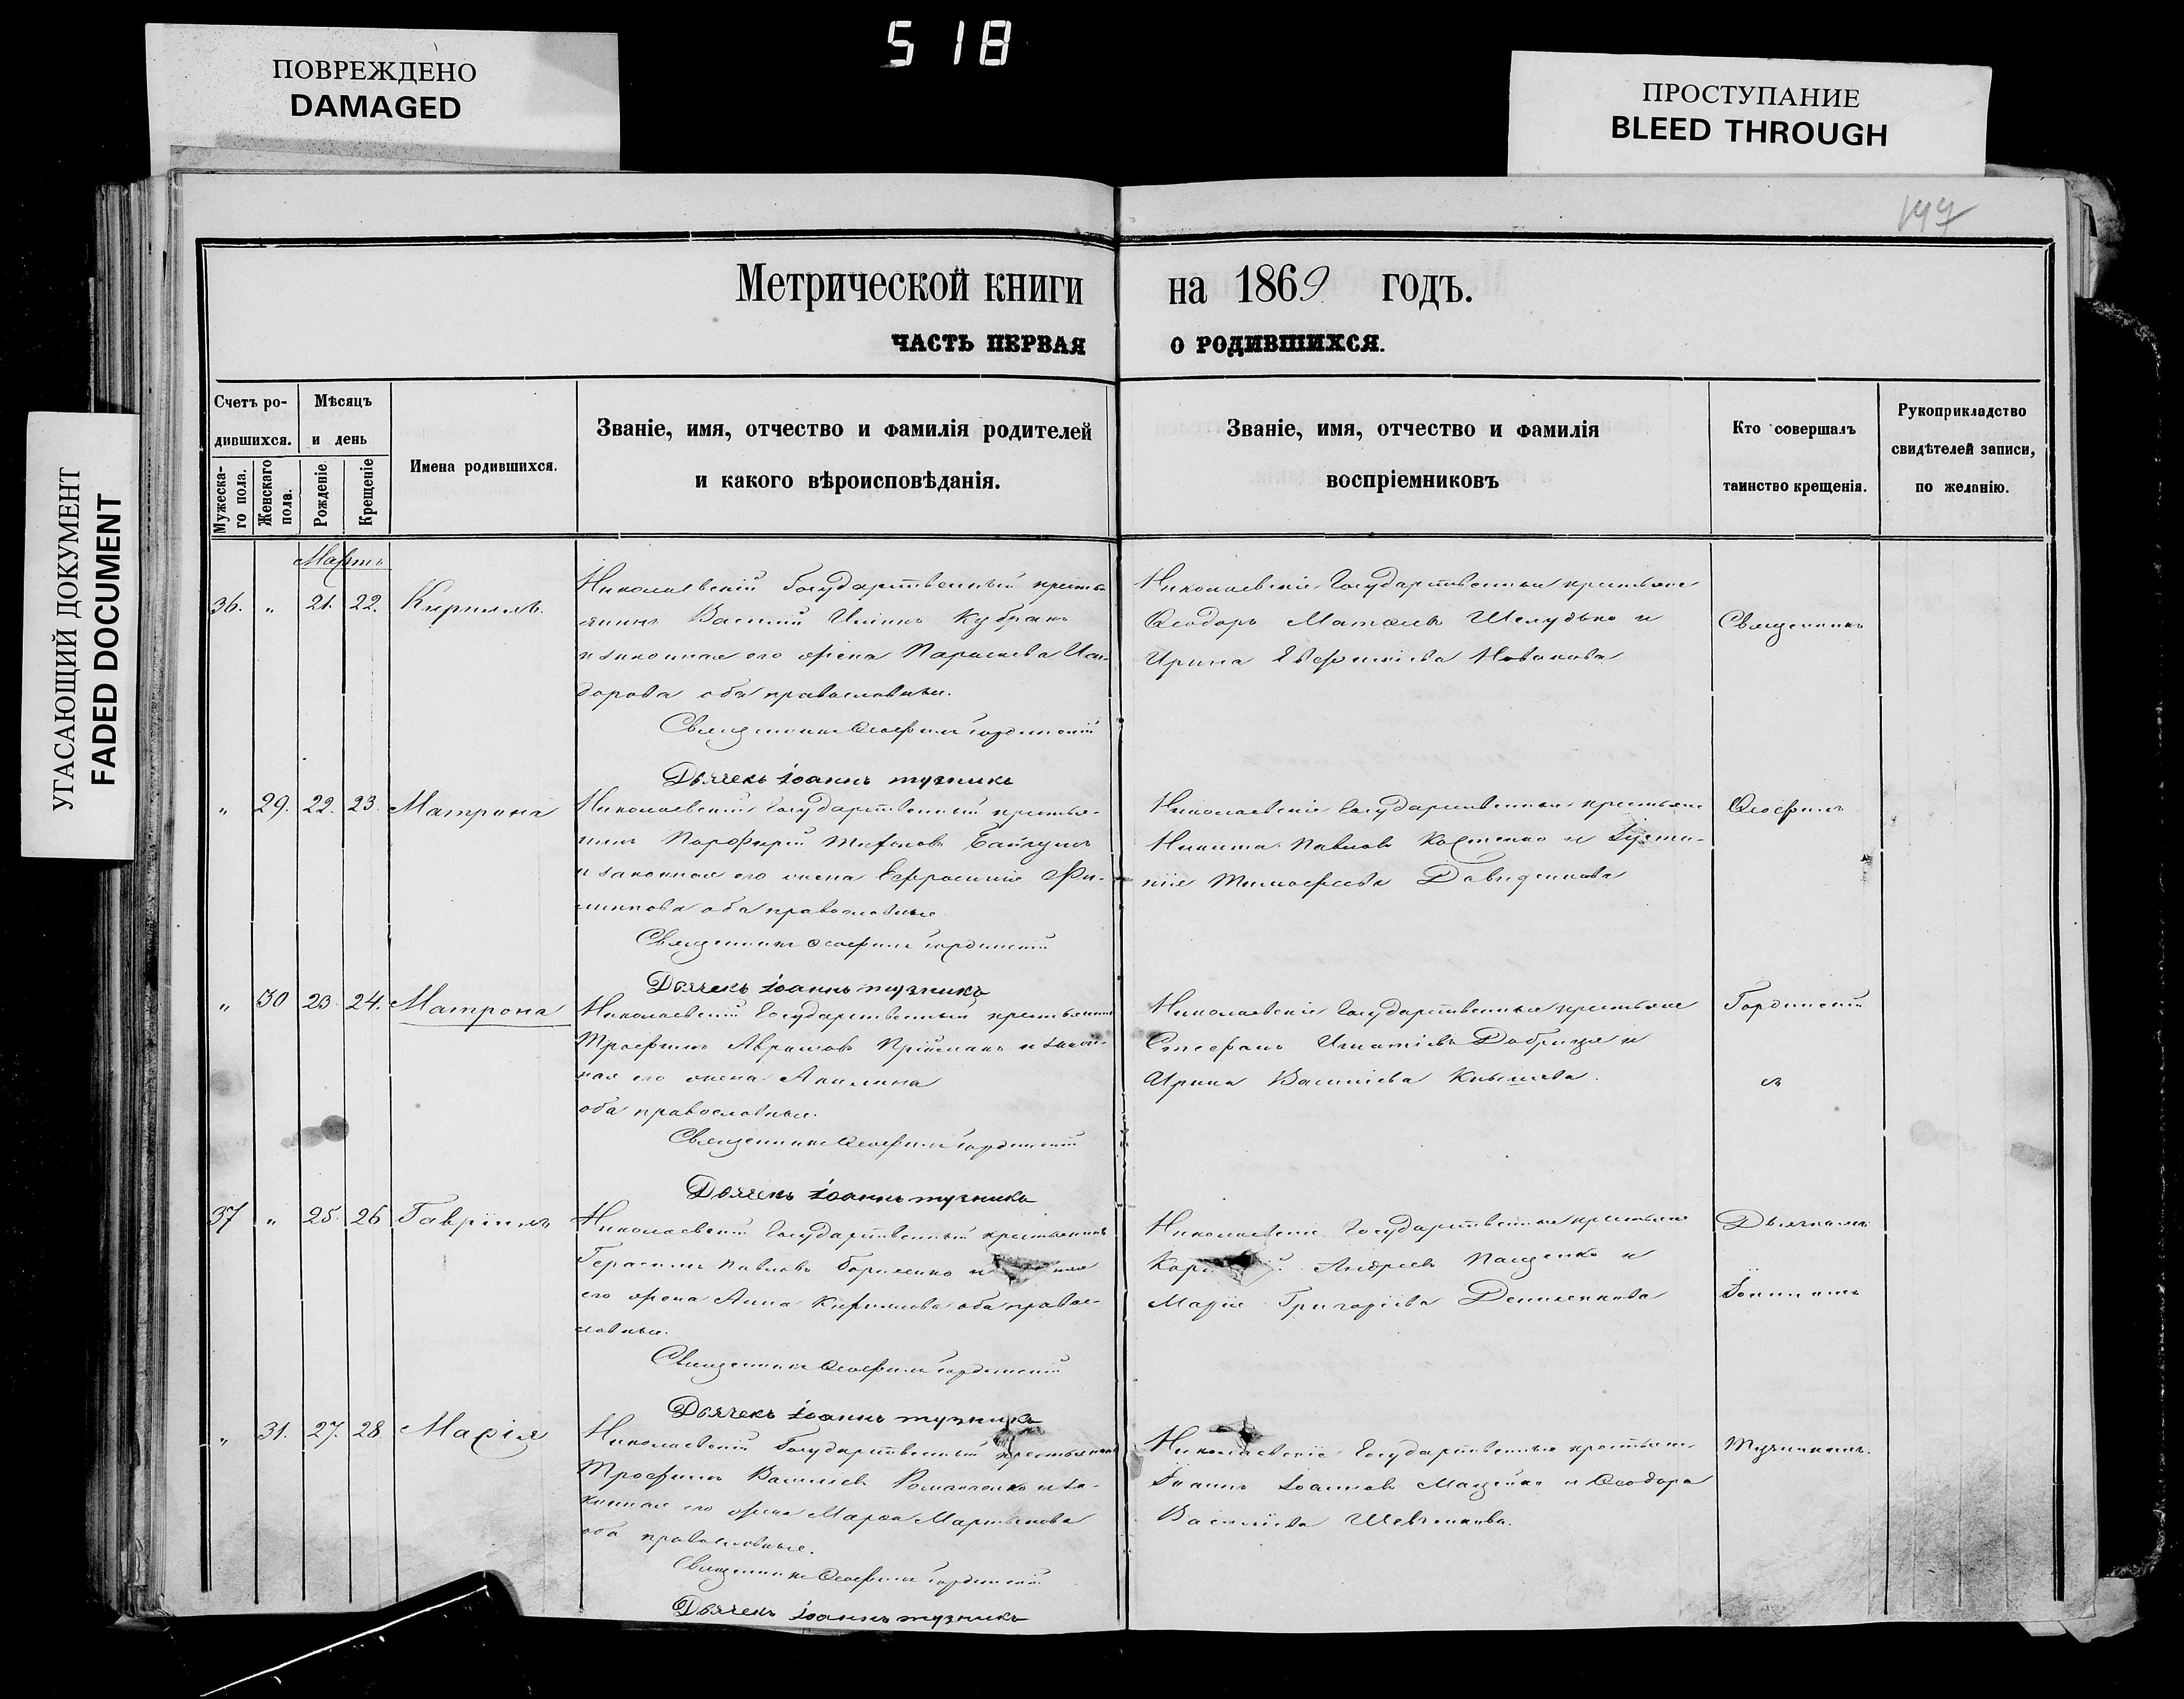 518
ПОВРЕЖДЕНО
DAMAGED
ПРОСТУПАНИЕ
BLEED THROUGH
УГАСАЮЩИЙ ДОКУМЕНТ
FADED DOCUMENT
Метрической книги на 1869 годъ.
ЧАСТЬ ПЕРВАЯ О РОДИВШИХСЯ.
Счетъ ро-
дившихся.
Мужеска-
го пола.
Женскаго
пола.
Мѣсяцъ
и день
Рожденіе.
Крещеніе
Имена родившихся.
Званіе, имя, отчество и фамилія родителей
и какого вѣроисповѣданія.
Званіе, имя, отчество и фамилія
воспріемниковъ
Кто совершалъ
таинство крещенія.
Рукоприкладство
свидѣтелей записи,
по желанію.
Мартъ
36. " 21. 22. Кириллъ.
Николаевскій Государственный кресть-
янинъ Василій Кубракъ
и законная его жена Параскева Иси-
дорова оба православные.
Священникъ Ѳеофилъ Гординскій
Дьячекъ Іоаннъ тузникъ
Николаевскіе Государственные крестьяне
Ѳеодоръ Шелудько и
Ирина Новакова
Священникъ
" 29. 22. 23. Матрона
Николаевскій Государственный крестья-
нинъ Порфирій
и законная его жена Ефросинія Фи-
липпова оба православные
Священникъ Ѳеофилъ Гординскій
Дьячекъ Іоаннъ тузникъ
Николаевскіе Государственные крестьяне
Никита Павловъ Костенко и Іусти-
нія Тимофеева Давиденкова
Ѳеофилъ
" 30 23 24. Матрона
Николаевскій Государственный крестьянинъ
Трофимъ Аврамовъ Пріймакъ и закон-
ная его жена Акилина
оба православные.
Священникъ Ѳеофилъ Гординскій
Дьячекъ Іоаннъ тузникъ
Николаевскіе Государственные крестьяне
Стефанъ Игнатіевъ Добриця и
Ирина Василіева
Гординскій
съ
37 " 25. 26 Гавріилъ
Николаевскій Государственный крестьянинъ
Герасимъ Павловъ и
его жена Анна Кириллова оба право-
славные.
Священникъ Ѳеофилъ Гординскій
Дьячекъ Іоаннъ тузникъ
Николаевскіе Государственные крестьяне
Андреевъ Пащенко и
Марія Григоріева Денисенкова
Дьячкомъ
Іоанномъ
" 31. 27. 28 Марія
Николаевскій Государственный крестьянинъ
Трофимъ Василіевъ Романенко и за-
конная его жена Марфа Мартынова
оба православные.
Священникъ Ѳеофилъ Гординскій
Дьячекъ Іоаннъ тузникъ
Николаевскіе Государственные крестьяне
Іоаннъ Іоанновъ и Ѳеодора
Василіева Шевченкова.
Тузникомъ.